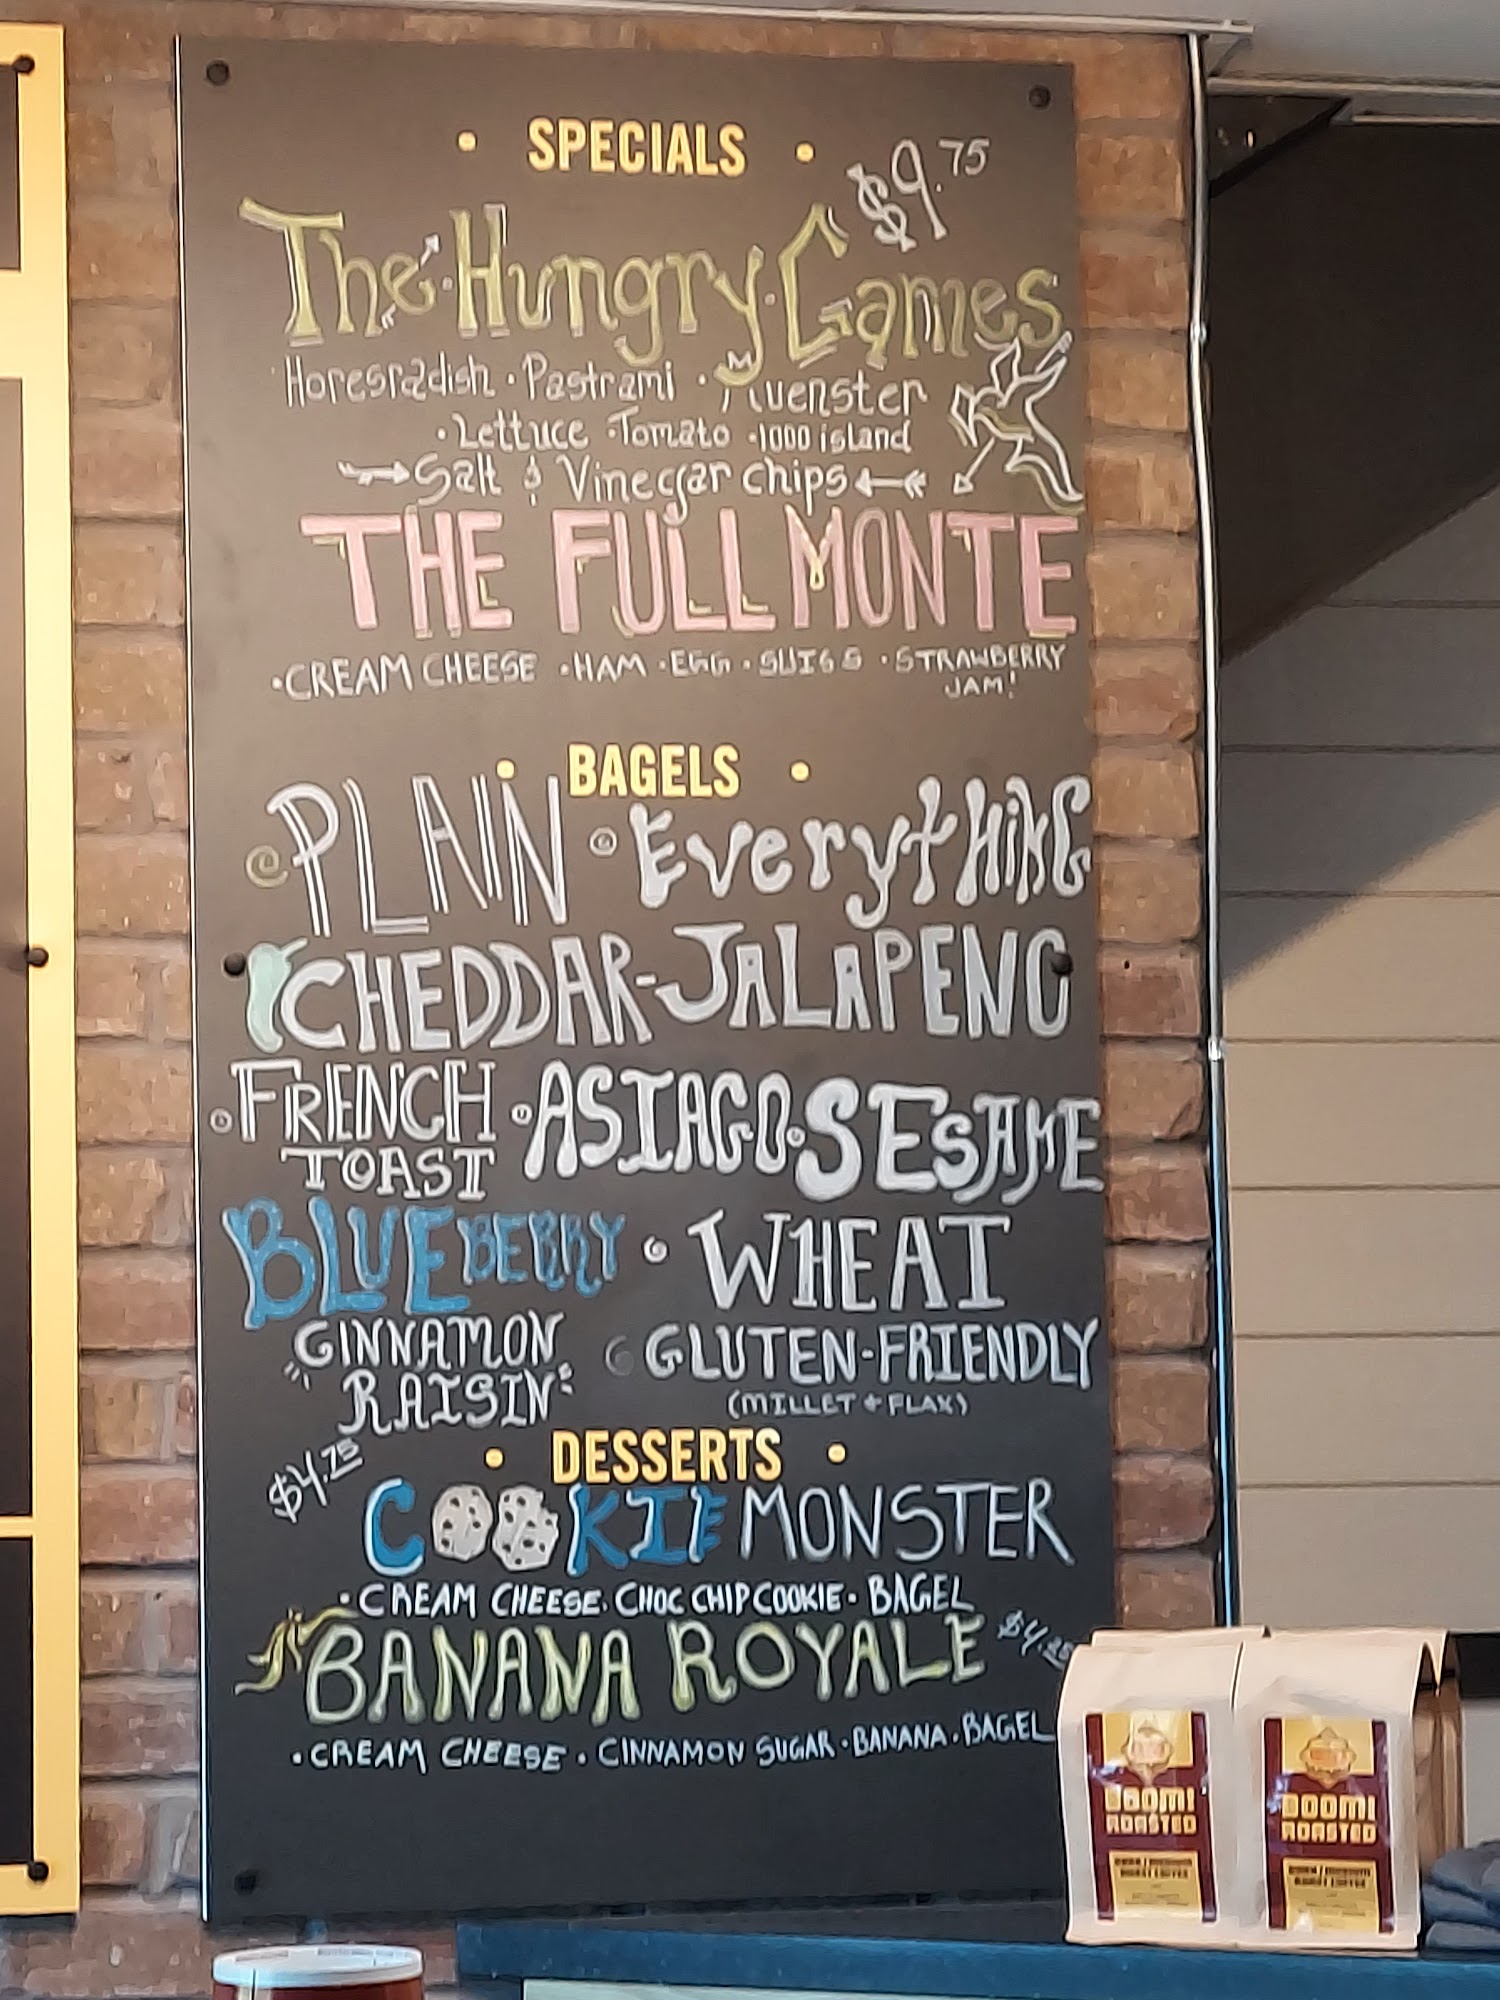 • SPECIALS •
$9.75
The Hungry Games
Horesradish • Pastrami • Muenster
• Lettuce • Tomato • 1000 island
Salt & Vinegar chips
THE FULL MONTE
• CREAM CHEESE • HAM • EGG • SWISS • STRAWBERRY
JAM!
• BAGELS •
PLAIN • EveryTHING
CHEDDAR-JALAPENO
• FRENCH TOAST • ASIAGO • SESAME
BLUEBERRY • WHEAT
CINNAMON RAISIN GLUTEN-FRIENDLY
(MILLET + FLAX)
• DESSERTS •
$4.75
COOKIE MONSTER
• CREAM CHEESE • CHOC CHIP COOKIE • BAGEL
BANANA ROYALE
• CREAM CHEESE • CINNAMON SUGAR • BANANA • BAGEL
BOOM!
ROASTED
BOOM!
ROASTED